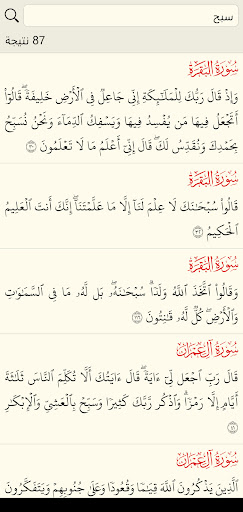 سبح
87 نتيجة
سُورَةُ البَقَرَةِ
وَإِذْ قَالَ رَبُّكَ لِلْمَلَٰٓئِكَةِ إِنِّى جَاعِلٌ فِى ٱلْأَرْضِ خَلِيفَةً ۖ قَالُوٓا۟
أَتَجْعَلُ فِيهَا مَن يُفْسِدُ فِيهَا وَيَسْفِكُ ٱلدِّمَآءَ وَنَحْنُ نُسَبِّحُ
بِحَمْدِكَ وَنُقَدِّسُ لَكَ ۖ قَالَ إِنِّىٓ أَعْلَمُ مَا لَا تَعْلَمُونَ ٣٠
سُورَةُ البَقَرَةِ
قَالُوا۟ سُبْحَٰنَكَ لَا عِلْمَ لَنَآ إِلَّا مَا عَلَّمْتَنَآ ۖ إِنَّكَ أَنتَ ٱلْعَلِيمُ
ٱلْحَكِيمُ ٣٢
سُورَةُ البَقَرَةِ
وَقَالُوا۟ ٱتَّخَذَ ٱللَّهُ وَلَدًا ۗ سُبْحَٰنَهُۥ ۖ بَل لَّهُۥ مَا فِى ٱلسَّمَٰوَٰتِ
وَٱلْأَرْضِ ۖ كُلٌّ لَّهُۥ قَٰنِتُونَ ١١٦
سُورَةُ آلِ عِمْرَانَ
قَالَ رَبِّ ٱجْعَل لِّىٓ ءَايَةً ۖ قَالَ ءَايَتُكَ أَلَّا تُكَلِّمَ ٱلنَّاسَ ثَلَٰثَةَ
أَيَّامٍ إِلَّا رَمْزًا ۗ وَٱذْكُر رَّبَّكَ كَثِيرًا وَسَبِّحْ بِٱلْعَشِىِّ وَٱلْإِبْكَٰرِ
٤١
سُورَةُ آلِ عِمْرَانَ
ٱلَّذِينَ يَذْكُرُونَ ٱللَّهَ قِيَٰمًا وَقُعُودًا وَعَلَىٰ جُنُوبِهِمْ وَيَتَفَكَّرُونَ